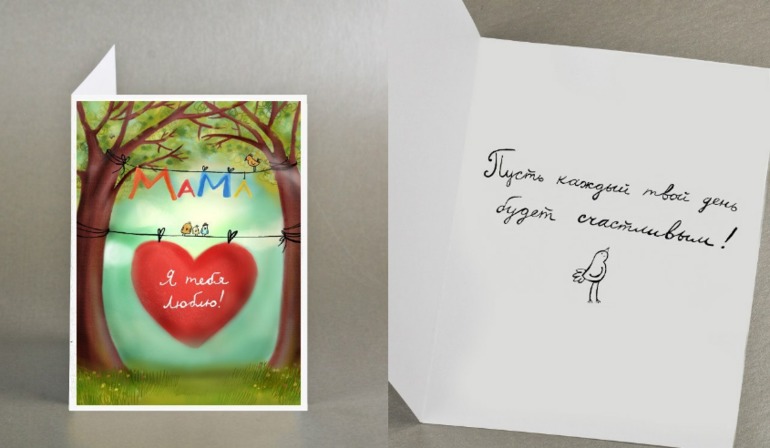 МАМА
Я тебя
люблю!
Пусть каждый твой день
будет счастливым!